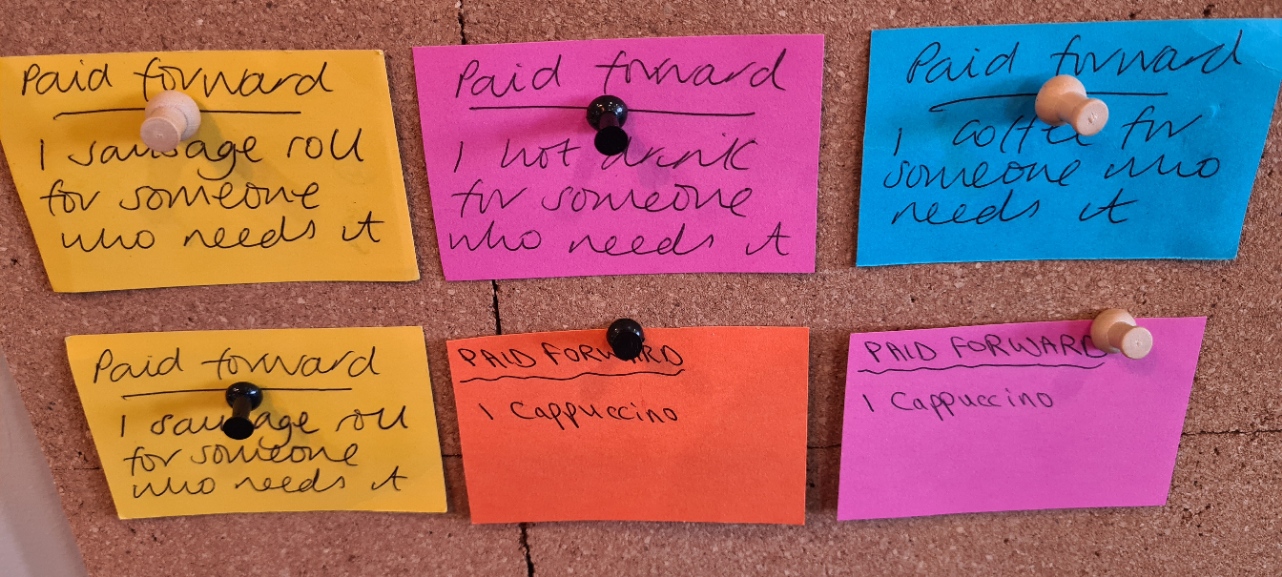 Paid forward
1 sausage roll
for someone
who needs it
Paid forward
1 hot drink
for someone
who needs it
Paid forward
1 coffee for
someone who
needs it
Paid forward
1 sausage roll
for someone
who needs it
PAID FORWARD
1 Cappuccino
PAID FORWARD
1 Cappuccino